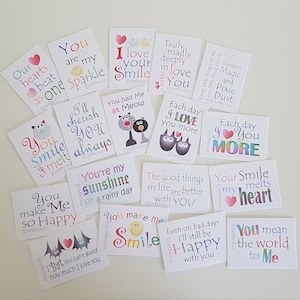 Our
hearts
beat as
one
You
are my
Sparkle
I love
your
Smile
Truly
madly
deeply
in love
with
You
Magic
and
Pixie
Dust
You
Smile
I melt
I'll
cherish
YOU
always
You had Me
at
Meow
Each day
I LOVE
you more
Each day
I You
MORE
You
make Me
so Happy
You're my
sunshine
on a rainy day
The good things
in life are
better
with YOU
Your Smile
melts
my heart
I bat you can't guess
how much I love you
You make me
Smile
Even on bad days
I'll still be
Happy
with you
You mean
the world
to Me